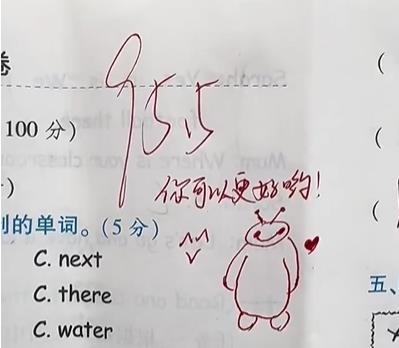 卷
95.5
100 分)
你可以更好哟!
)
的单词。(5 分)
C. next
C. there
C. water
(
(
(
五、